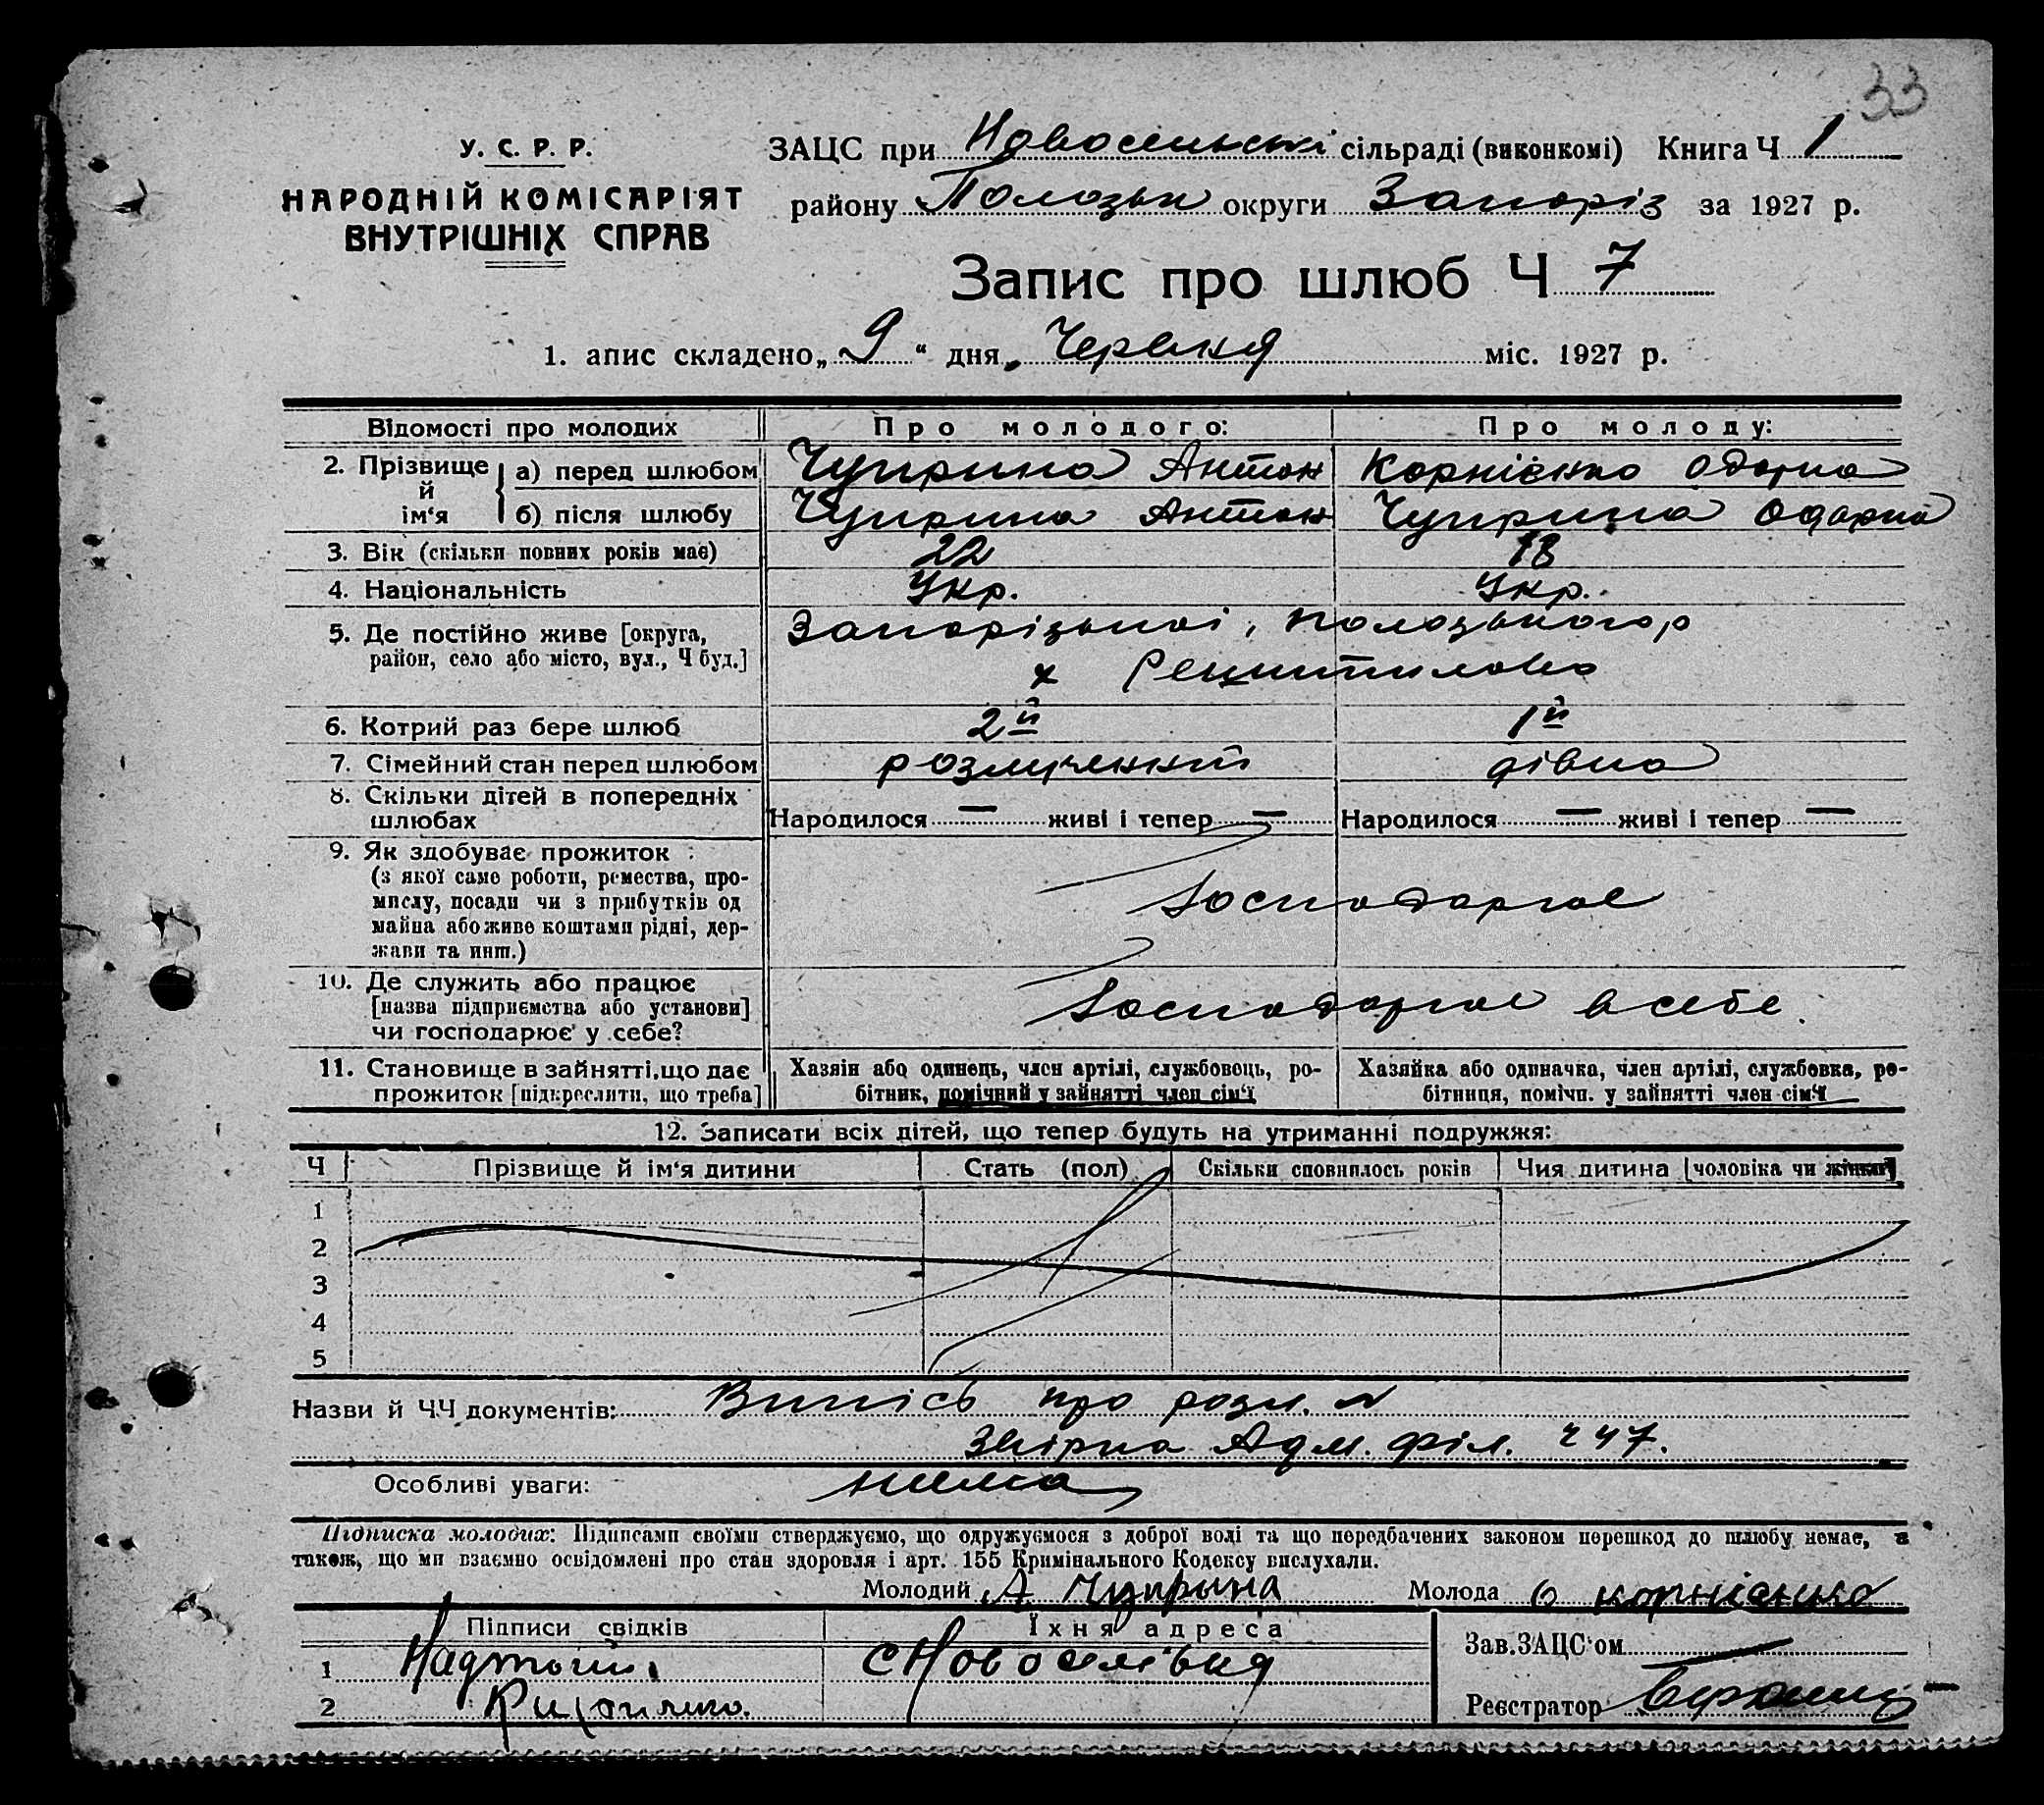 33
У. С. Р. Р.
НАРОДНІЙ КОМІСАРІЯТ
ВНУТРІШНІХ СПРАВ
ЗАЦС при Новосельські сільраді (виконкомі) Книга Ч 1
району Пологськ округи Запоріз за 1927 р.
Запис про шлюб Ч 7
1. апис складено „ 9 “ дня Червня міс. 1927 р.
Відомості про молодих Про молодого: Про молоду:
2. Прізвище й ім‘я а) перед шлюбом Чуприна Антон Корнієнко Одарка
б) після шлюбу Чуприна Антон Чуприна Одарка
3. Вік (скільки повних років має) 22 18
4. Національність Укр. Укр.
5. Де постійно живе [округа, Запорізької, Пологського р
район, село або місто, вул., Ч буд.] х
6. Котрий раз бере шлюб 2й 1й
7. Сімейний стан перед шлюбом розлучений дівка
8. Скільки дітей в попередніх
шлюбах Народилося — живі і тепер — Народилося — живі і тепер —
9. Як здобуває прожиток
(з якої саме роботи, ремества, про-
мислу, посади чи з прибутків од Господарює
майна або живе коштами рідні, дер-
жави та инш.)
10. Де служить або працює
[назва підприємства або установи] Господарює в себе.
чи господарює у себе?
11. Становище в зайнятті, що дає Хазяін або одинець, член артілі, службовець, ро- Хазяйка або одиначка, член артілі, службовка, ро-
прожиток [підкреслити, що треба] бітник, помічний у зайнятті член сім‘ї бітниця, помічн. у зайнятті член сім‘ї
12. Записати всіх дітей, що тепер будуть на утриманні подружжя:
Ч Прізвище й ім‘я дитини Стать (пол) Скільки сповнилось років Чия дитина [чоловіка чи жінки]
1
2
3
4
5
Назви й ЧЧ документів: Випісь про розл. №
Адм. філ. 247.
Особливі уваги: нема
Підписка молодих: Підписами своїми стверджуємо, що одружуємося з доброї волі та що передбачених законом перешкод до шлюбу немає, а
також, що ми взаємно освідомлені про стан здоровля і арт. 155 Кримінального Кодексу вислухали.
Молодий А Чуприна Молода О Корнієнко
Підписи свідків Їхня адреса
1 с Новоселівка Зав. ЗАЦС‘ом
2 Реєстратор